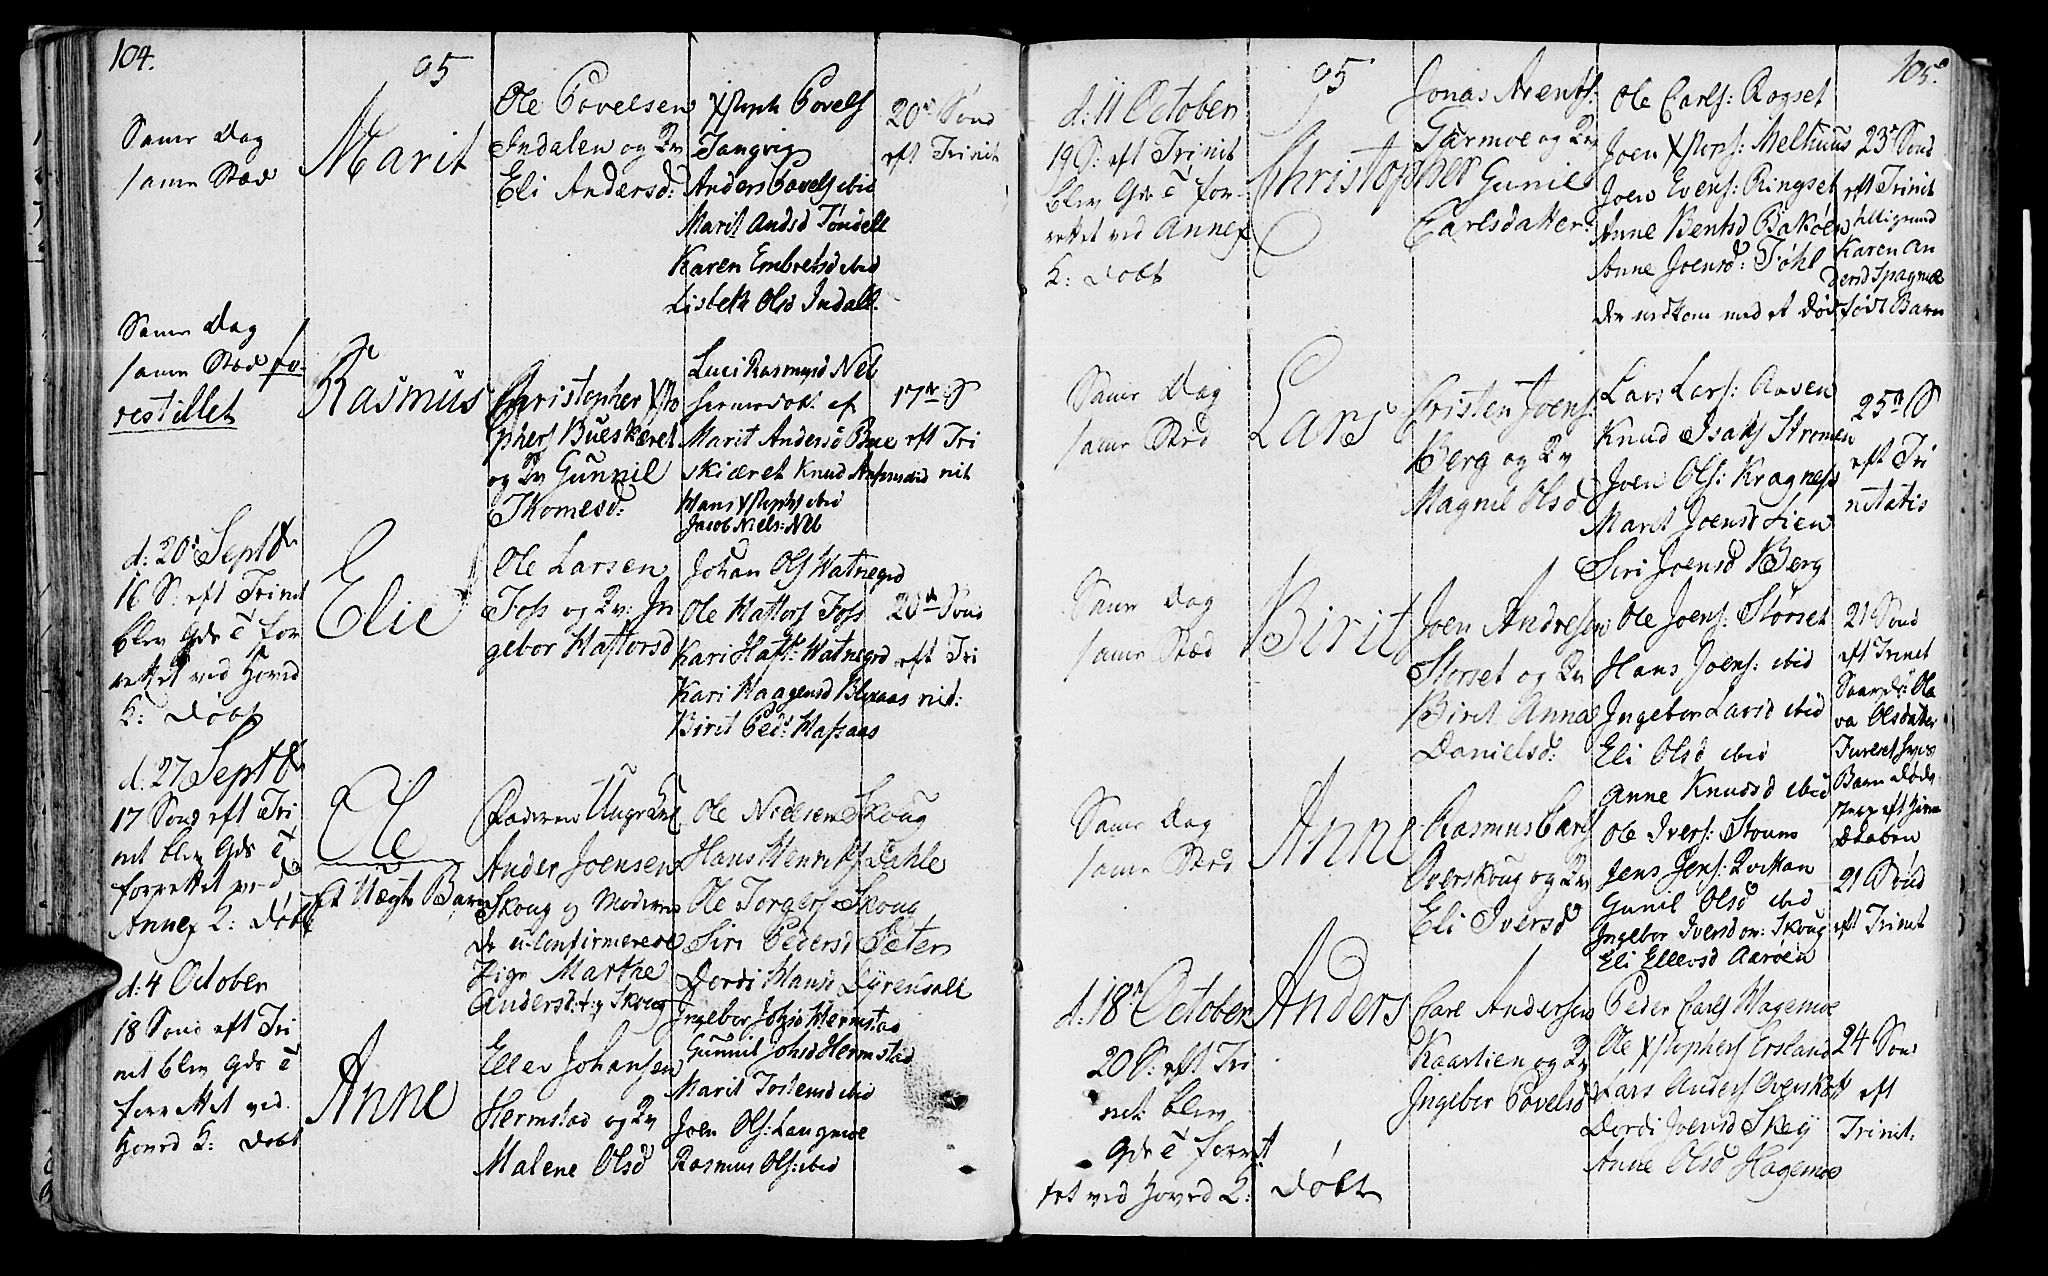 104.
95
Samme Dag
samme Stæd
Marit
Ole Povelsen
Indalen og Qv
Eli Andersd:
Xstoph Povels
Tangvig
Anders Povels ibid
Marit Andsd Tøndell
Karen Embretsd ibid
Lisbeth Olsd Indall.
20de Sønd
eft Trinit
Samme Dag
samme Stæd fo-
restillet
Rasmus
Christopher Xsto
phers Bueskæret
og Qv Gunnil
Thomesd:
Luci Rasmusd Nel
hiemedøbt af
Marit Andersd Bue
skiæret Knud
Hans Xstophs ibid
Jacob Niels: Nel
17de S
eft Tri
nit
d: 20de Septbr
16 S: eft Trinit
blev Gds T for
rettet ved Hoved
K: døbt
Elie
Ole Larsen
Foss og Qv: In
gebor Haftorsd
Johan Ols Watnegrd
Ole Haftors Foss
Kari Haft: Watnegrd
Kari Haagensd Blexaas
Birit Ped: Hafsaas
20de Sønd
eft Tri
nit:
d: 27 Septbr
17 Sønd eft Tri
nit blev Gds T
forrettet ved
Annex K: døbt
Ole
Et Uægte Barn
Faderen Unge Karl
Ander Joensen
Skoug og Moderen
de u-confirmerede
Pige Marthe
Andersd: og Skoug
Ole Nielsen Skoug
Hans Henriks Dahle
Ole Torgers Skoug
Siri Pedersd Sæter
Dordi Hansd Dyrendall
Ingebor Johsd Hermstad
d: 4 October
18 Sønd eft Tri
nit blev Gds T
forrettet ved
Hoved K: døbt
Anne
Eller Johansen
Hermstad og Qv
Malene Olsd
Gunnil Johsd Hermstad
Marit Jostensd ibid
Joen Ols: Langmoe
Rasmus Ols: ibid
105.
95
d: 11 October
19 S: eft Trinit
blev Gds T for-
rettet ved Annex
K: døbt
Christopher
Jonas Arents:
Garmoe og Qv
Gunil
Carlsdatter:
Ole Carls: Rogset
Joen Xstops: Melhuus
Joen Evens: Ringset
Anne Bentsd Bakøen
Anne Joensd: Føhl
23de Sønd
eft Trinit
Karen An
dersd Spagmoe
der nedkom med et død født Barn
Samme Dag
samme Stæd
Lars
Cristen Joens:
Berg og Qv
Magnil Olsd
Lars Lars: Aasen
Knud Isaks Strømen
Joen Ols: Kragnes
Maret Joensd Lien
Siri Joensd Berg
25de S
eft Tri
nitatis
Samme Dag
samme Stæd
Birit
Joen Andresen
Storset og Qv
Birit Anna
Danielsd:
Ole Joens: Størset
Hans Joens: ibid
Ingebor Larsd ibid
Eli Olsd ibid
Anne Knudsd ibid
21 Sønd
eft Trinit
va Olsdatter
Barn døde
strax eft Hiemme
daaben
Samme Dag
samme Stæd
Anne
Rasmus Carls
Overskoug og Qv
Eli Iversd
Ole Ivers: Stouns
Jens Jens: Lockan
Gunil Olsd ibid
Ingebor Iversd ov: Skoug
Eli Ellevsd Aarøen
21 Sønd
eft Trinit
d: 18de October
20 S: eft Tri
nit: blev
Gds T forret
tet ved Hoved K: døbt
Anders
Carl Andersen
Kaarlien og Qv
Ingebor Povelsd
Peder Carls Hagemoe
Ole Xstophers Ersland
Lars Anders Overskott
Dordi Joensd Skey
Anne Olsd Hagemoe
24 Sønd
eft
Trinit: